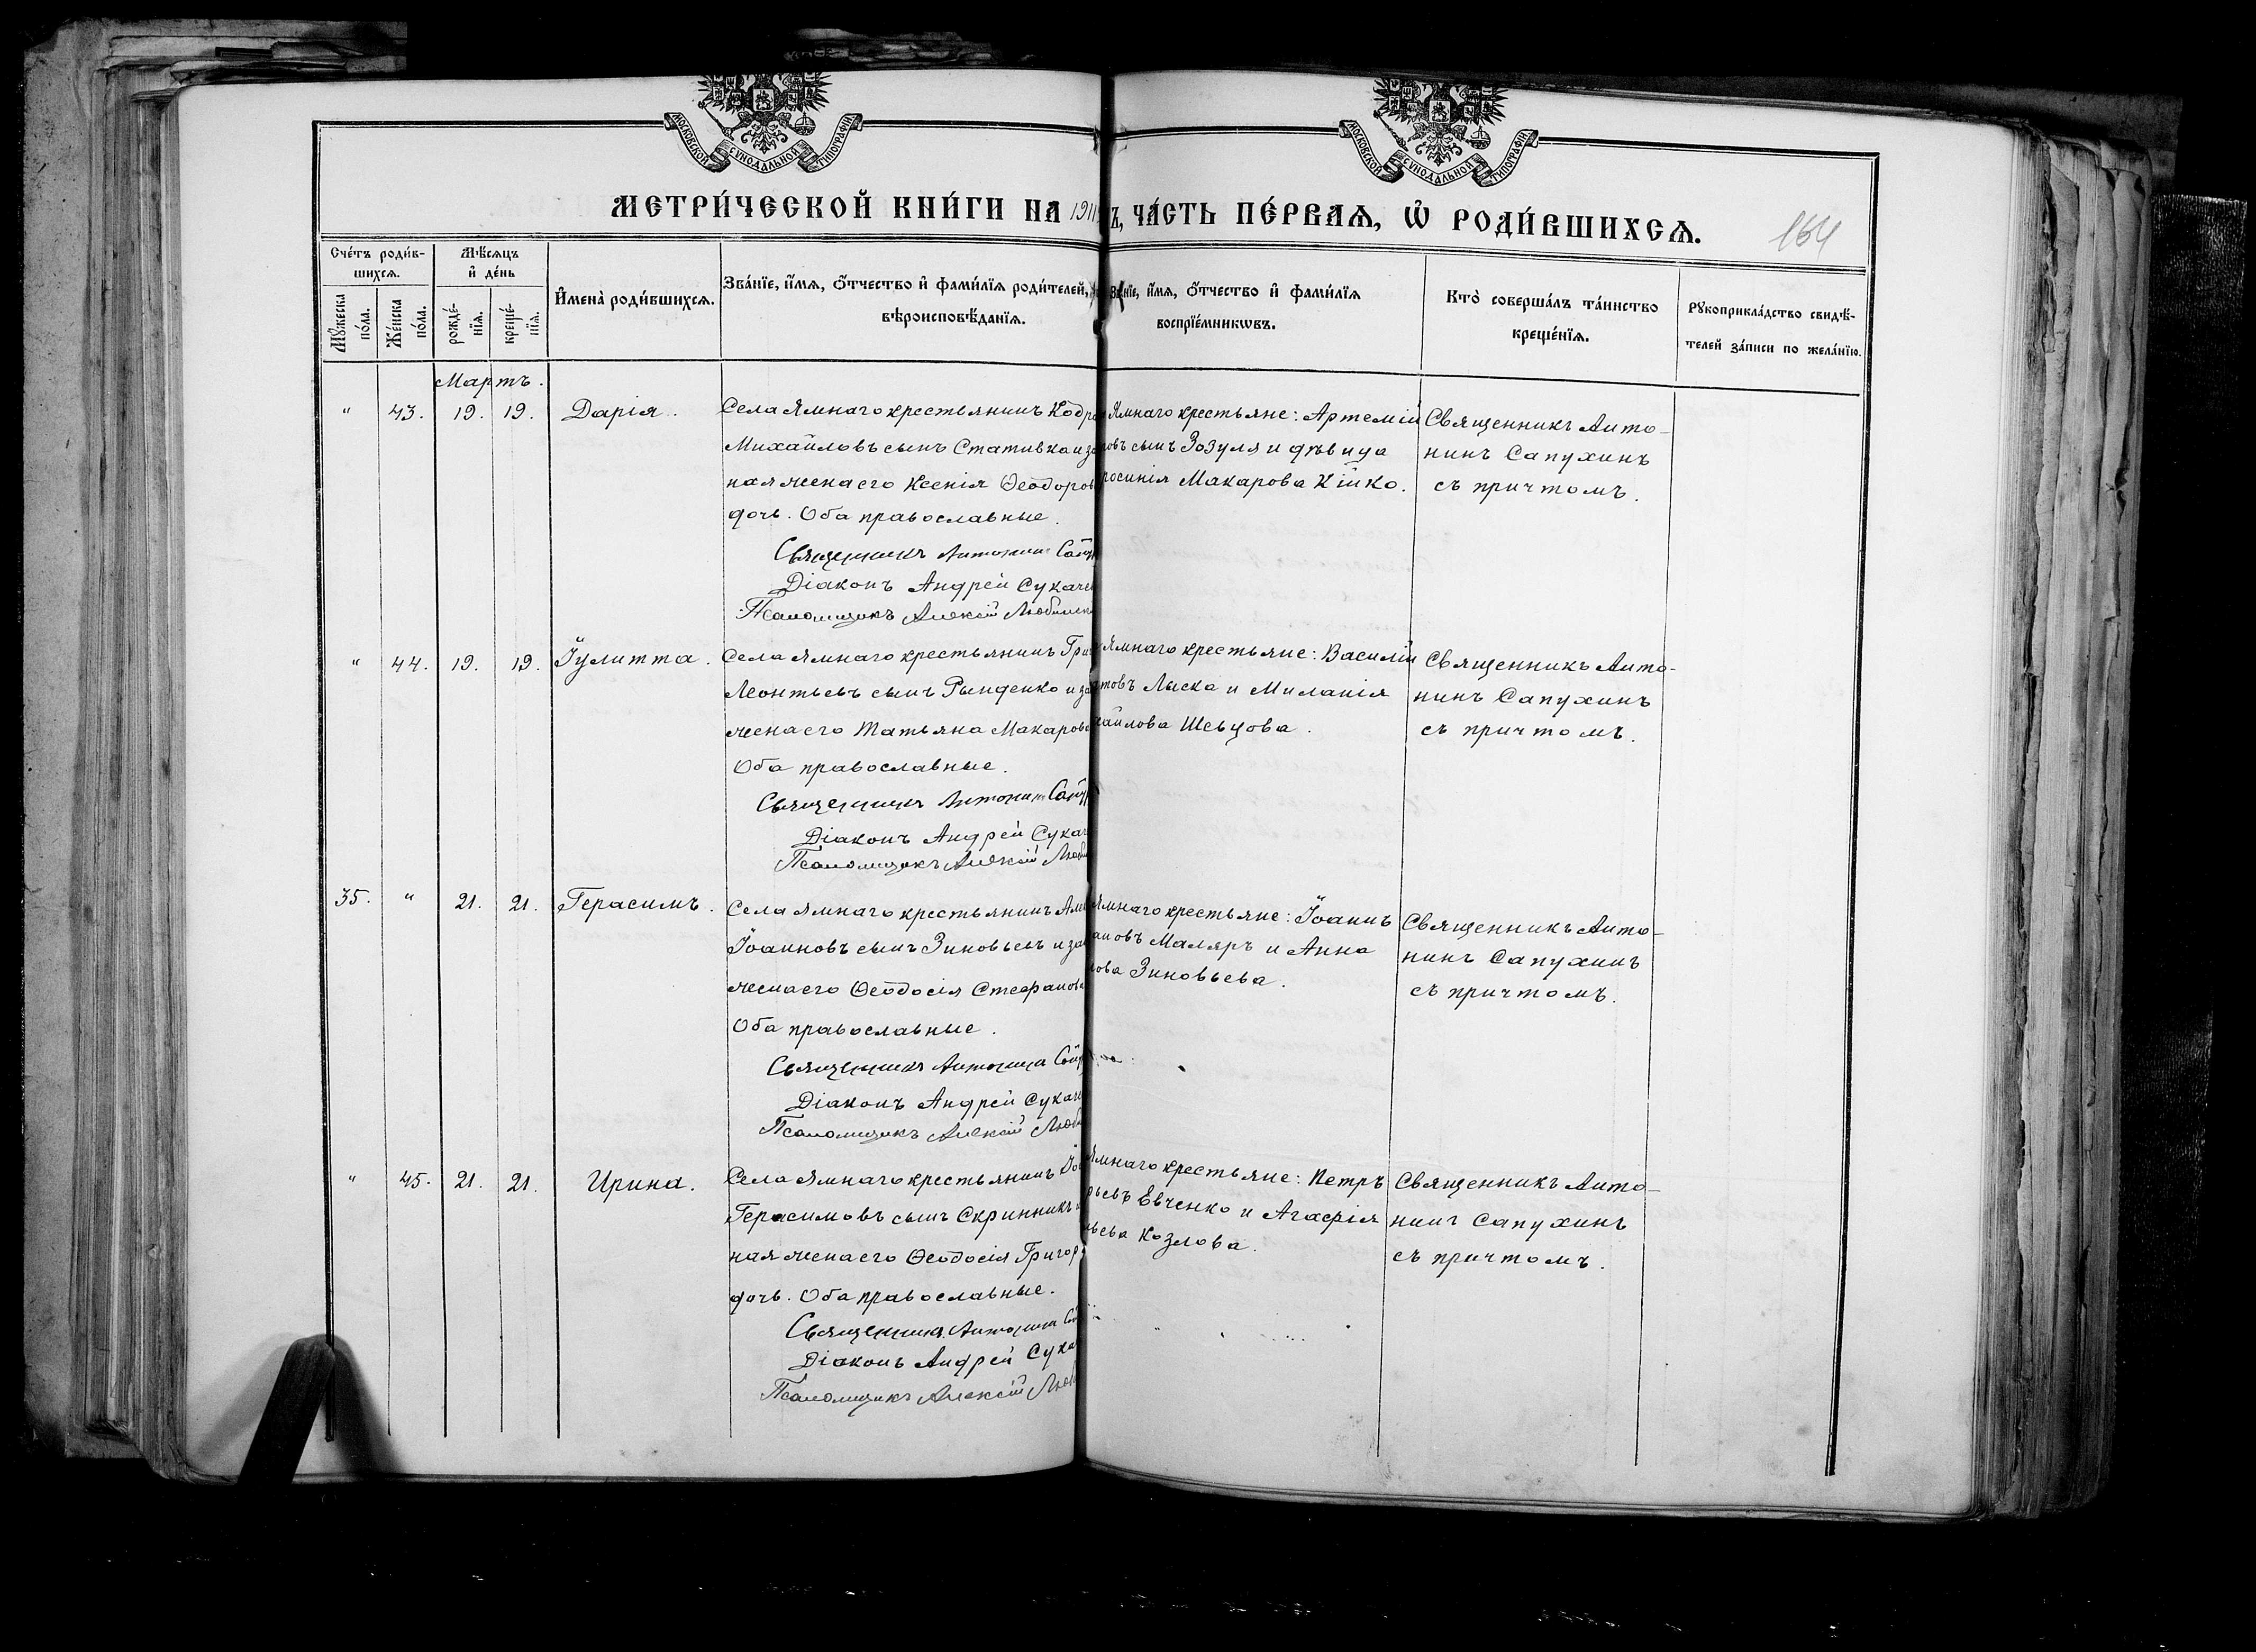 МОСКОВСКОЙ СѴНОДАЛЬНОЙ ТИПОГРАФІИ
МОСКОВСКОЙ СѴНОДАЛЬНОЙ ТИПОГРАФІИ
МЕТРИ́ЧЕСКОЙ КНИ́ГИ НА 1911
Ъ, ЧА́СТЬ ПЕ́РВАѦ, Ѡ҆ РОДИ́ВШИХСѦ.
164
Сче́тъ роди́в-
шихсѧ.
Мꙋ́жеска
по́ла.
Же́нска
по́ла.
Мѣ́сѧцъ
и҆ де́нь
рожде́-
нїѧ.
креще́-
нїѧ.
И҆мена̀ роди́вшихсѧ.
Зва́нїе, и҆́мѧ, ѻ҆́тчество и҆ фами́лїѧ роди́телей,
вѣроисповѣ́данїѧ.
Зва́нїе, и҆́мѧ, ѻ҆́тчество и҆ фами́лїѧ
воспрїе́мникѡвъ.
Кто̀ соверша́лъ та́инство
креще́нїѧ.
Рꙋкоприкла́дство свидѣ́-
телей за́писи по жела́нїю.
Мартъ.
" 43. 19. 19. Дарія.
Села Ямнаго крестьянинъ Кодра
Михайловъ сынъ Стативка и за
ная жена его Ксенія Ѳеодоров
дочь. Оба православные.
Священникъ Антонинъ Сапу
Діаконъ Андрей Сукаче
Псаломщикъ Алексій Любимск
Ямнаго крестьяне: Артемій
ровъ сынъ Зозуля и дѣвица
росинія Макарова Кійко.
Священникъ Анто-
нинъ Сапухинъ
съ причтомъ.
" 44. 19. 19. Іулитта.
Села Ямнаго крестьянинъ Григ
Леонтьевъ сынъ Рынденко и за
жена его Татьяна Макарова
Оба православные.
Священникъ Антонинъ Сапу
Діаконъ Андрей Сукач
Псаломщикъ Алексій Люби
Ямнаго крестьяне: Василій
товъ Лыска и Миланія
хайлова Шевцова.
Священникъ Анто-
нинъ Сапухинъ
съ причтомъ.
35. " 21. 21. Герасимъ.
Села Ямнаго крестьянинъ Але
Іоанновъ сынъ Зиновьевъ и за
жена его Ѳеодосія Стефанова
Оба православные.
Священникъ Антонинъ Сапу
Діаконъ Андрей Сукаче
Псаломщикъ Алексій Люби
Ямнаго крестьяне: Іоаннъ
ановъ Маляръ и Анна
ова Зиновьева.
Священникъ Анто-
нинъ Сапухинъ
съ причтомъ.
" 45. 21. 21. Ирина.
Села Ямнаго крестьянинъ Іоа
Герасимовъ сынъ Скринникъ и
ная жена его Ѳеодосія Григор
дочь. Оба православные.
Священникъ Антонинъ Сап
Діаконъ Андрей Сука
Псаломщикъ Алексій Люб
Ямнаго крестьяне: Петръ
рьевъ Евченко и Агафія
ьева Козлова.
Священникъ Анто-
нинъ Сапухинъ
съ причтомъ.